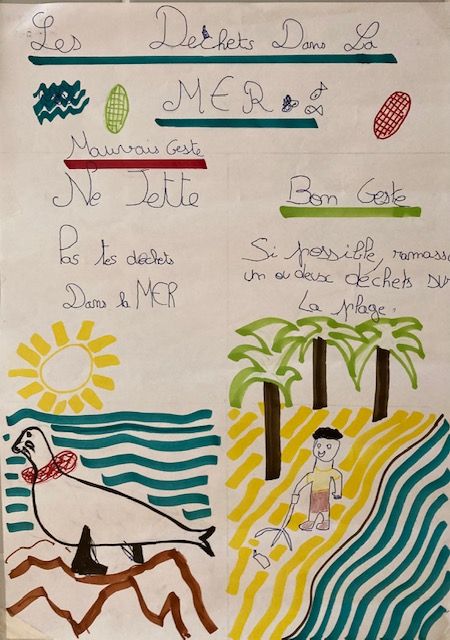 Les Déchets Dans La
MER
Mauvais Geste
Ne Jette
Pas tes déchets
Dans la MER
Bon Geste
Si possible, ramasse
un ou deux déchets sur
La plage.